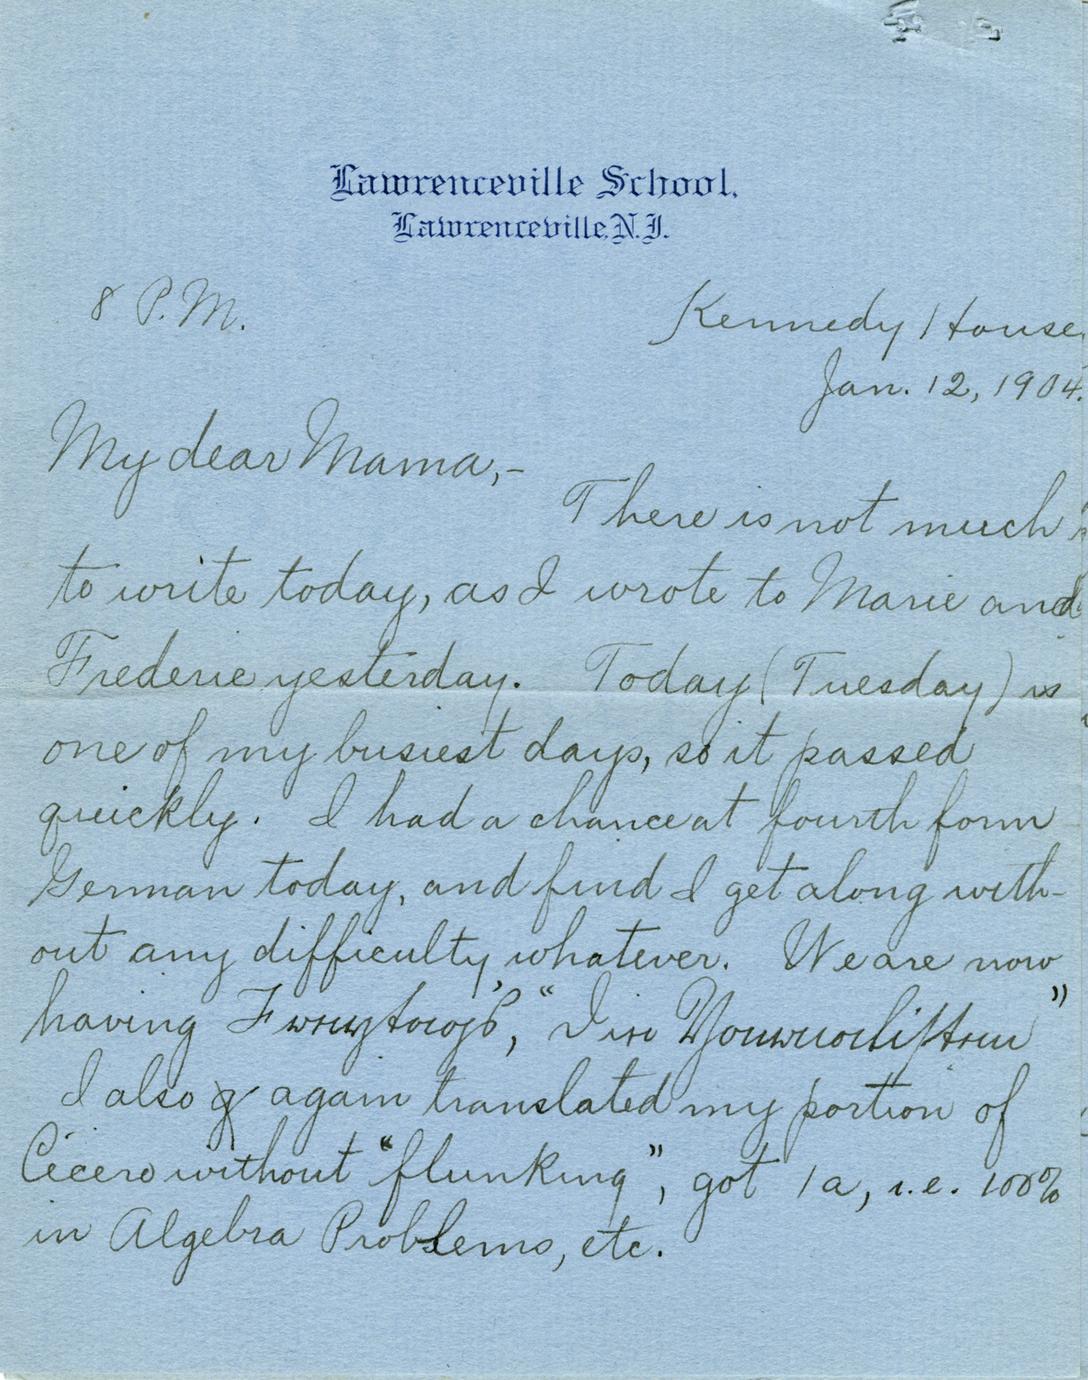 Lawrenceville School.
Lawrenceville, N.J.
8 P.M.
Kennedy House,
Jan. 12, 1904.
My dear Mama,-
There is not much
to write today, as I wrote to Marie and
Frederic yesterday. Today (Tuesday) is
one of my busiest days, so it passed
quickly. I had a chance at fourth form
German today, and find I get along with-
out any difficulty whatever. We are now
having Freytag's, "Die Journalisten"
I also again translated my portion of
Cicero without "flunking", got 1a, i.e. 100%
in Algebra Problems, etc.